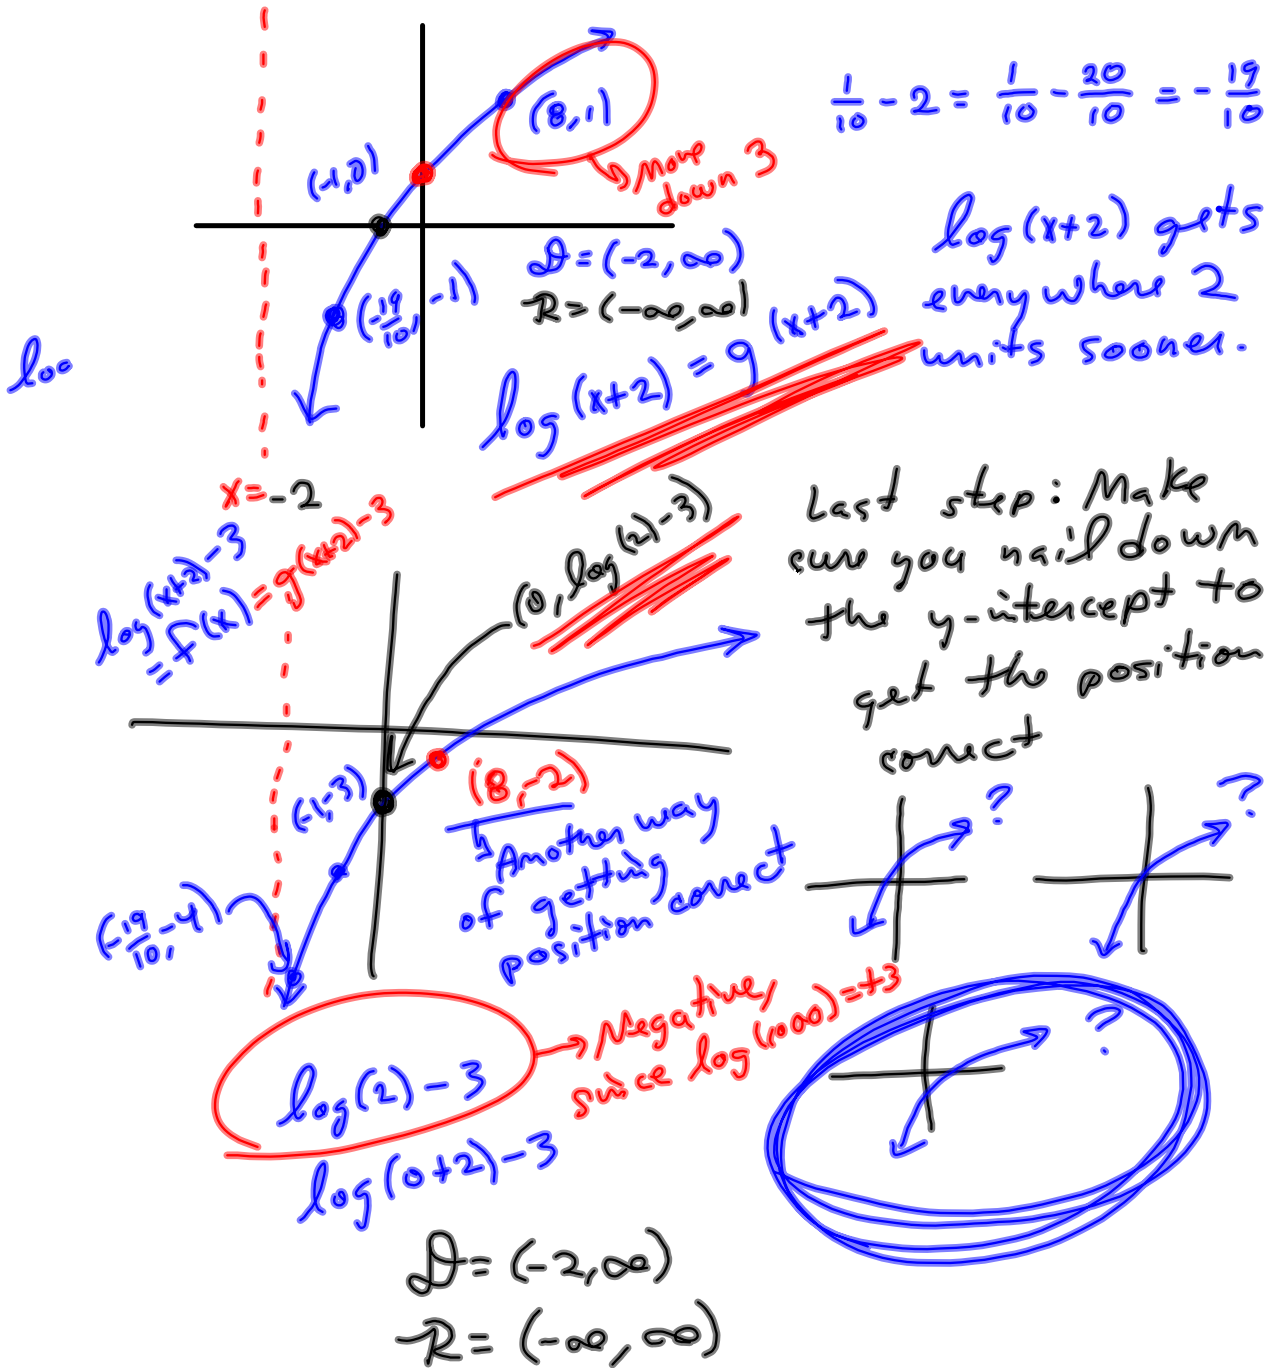 (8,1)
1/10 - 2 = 1/10 - 20/10 = -19/10
(-1,0)
Move
down 3
D = (-2,∞)
R = (-∞,∞)
(-19/10, -1)
log(x+2) gets
everywhere 2
units sooner.
log(x+2) = g(x+2)
log
x=-2
log(x+2)-3
= f(x) = g(x+2)-3
(0, log(2)-3)
Last step: Make
sure you nail down
the y-intercept to
get the position
correct
(-1,-3)
(8,-2)
Another way
of getting
position correct
(-19/10, -4)
?
?
?
log(2)-3
Negative,
since log(1000)=+3
log(0+2)-3
D = (-2,∞)
R = (-∞,∞)